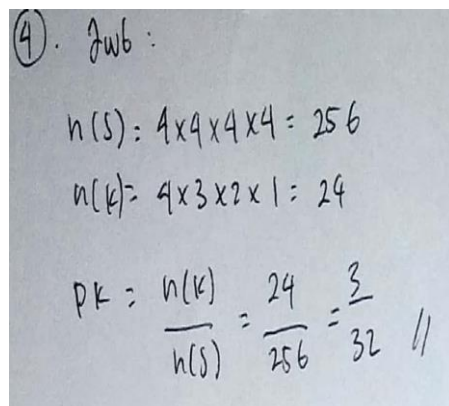 ④. Jwb :
n(S) = 4x4x4x4 = 256
n(K) = 4x3x2x1 = 24
PK = n(K)/n(S) = 24/256 = 3/32 //